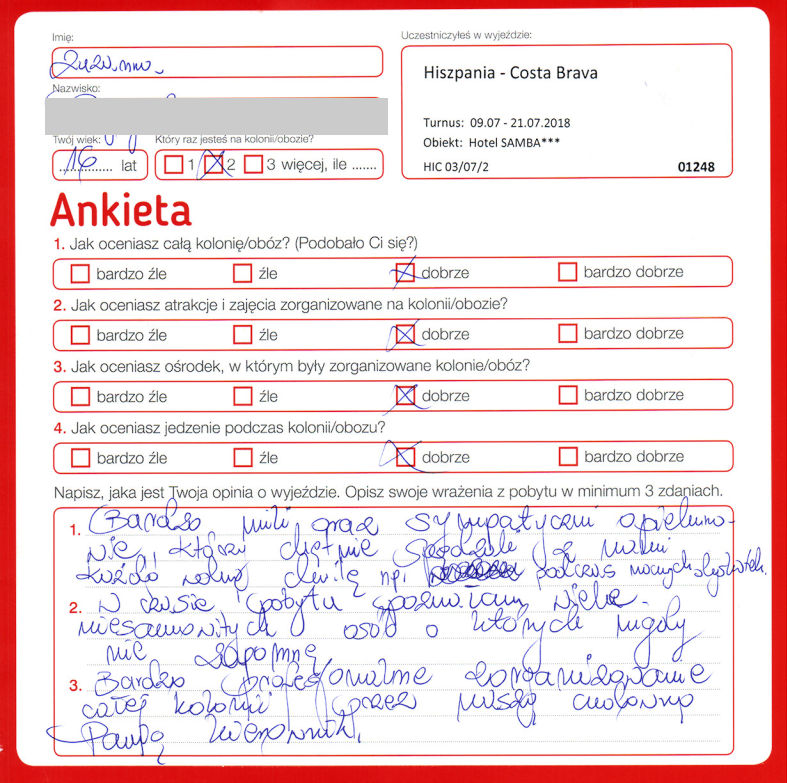 Imię:
Zuzanna
Nazwisko:
Twój wiek:
16 lat
Który raz jesteś na kolonii/obozie?
1 2 3 więcej, ile .......
Uczestniczyłeś w wyjeździe:
Hiszpania - Costa Brava
Turnus: 09.07 - 21.07.2018
Obiekt: Hotel SAMBA***
HIC 03/07/2 01248
Ankieta
1. Jak oceniasz całą kolonię/obóz? (Podobało Ci się?)
bardzo źle źle dobrze bardzo dobrze
2. Jak oceniasz atrakcje i zajęcia zorganizowane na kolonii/obozie?
bardzo źle źle dobrze bardzo dobrze
3. Jak oceniasz ośrodek, w którym były zorganizowane kolonie/obóz?
bardzo źle źle dobrze bardzo dobrze
4. Jak oceniasz jedzenie podczas kolonii/obozu?
bardzo źle źle dobrze bardzo dobrze
Napisz, jaka jest Twoja opinia o wyjeździe. Opisz swoje wrażenia z pobytu w minimum 3 zdaniach.
1. Bardzo mili, oraz sympatyczni opiekuno-
wie, którzy chętnie spędzali z nami
każdą wolną chwilę np. podczas nocnych
2. W czasie pobytu poznałam wiele
niesamowitych osób o których nigdy
nie zapomnę
3. Bardzo profesjonalne zorganizowanie
całej kolonii przez naszą cudowną
Panią kierownik.